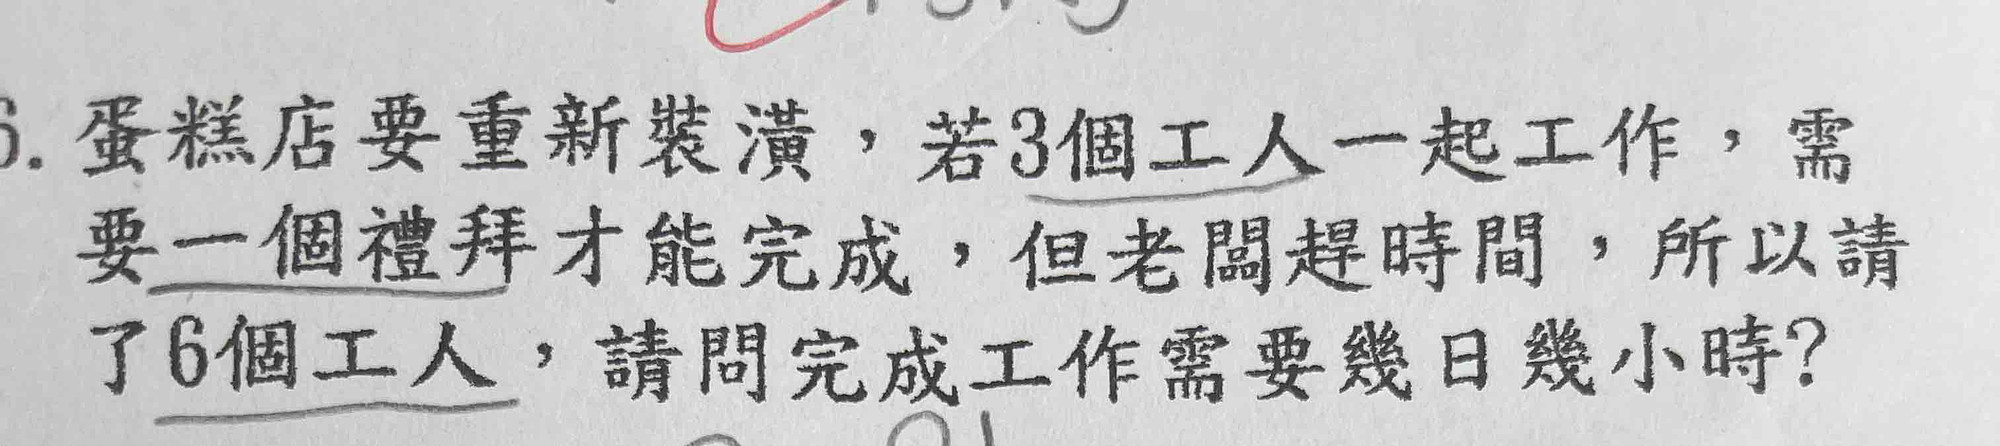 6. 蛋糕店要重新裝潢，若3個工人一起工作，需
要一個禮拜才能完成，但老闆趕時間，所以請
了6個工人，請問完成工作需要幾日幾小時?